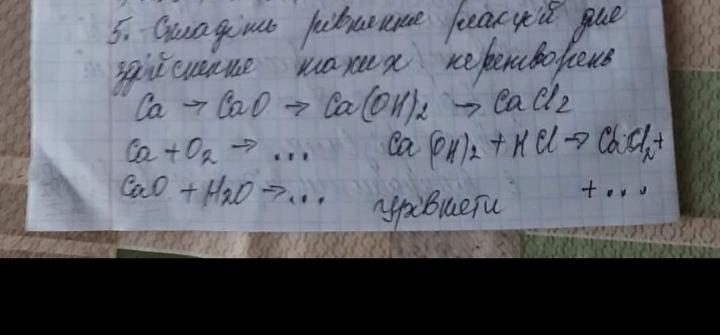 5. Складіть рівняння реакцій для
здійснення таких перетворень
Ca → CaO → Ca(OH)2 → CaCl2
Ca + O2 → ... Ca(OH)2 + HCl → CaCl2 +
CaO + H2O → ... урівняти + ...